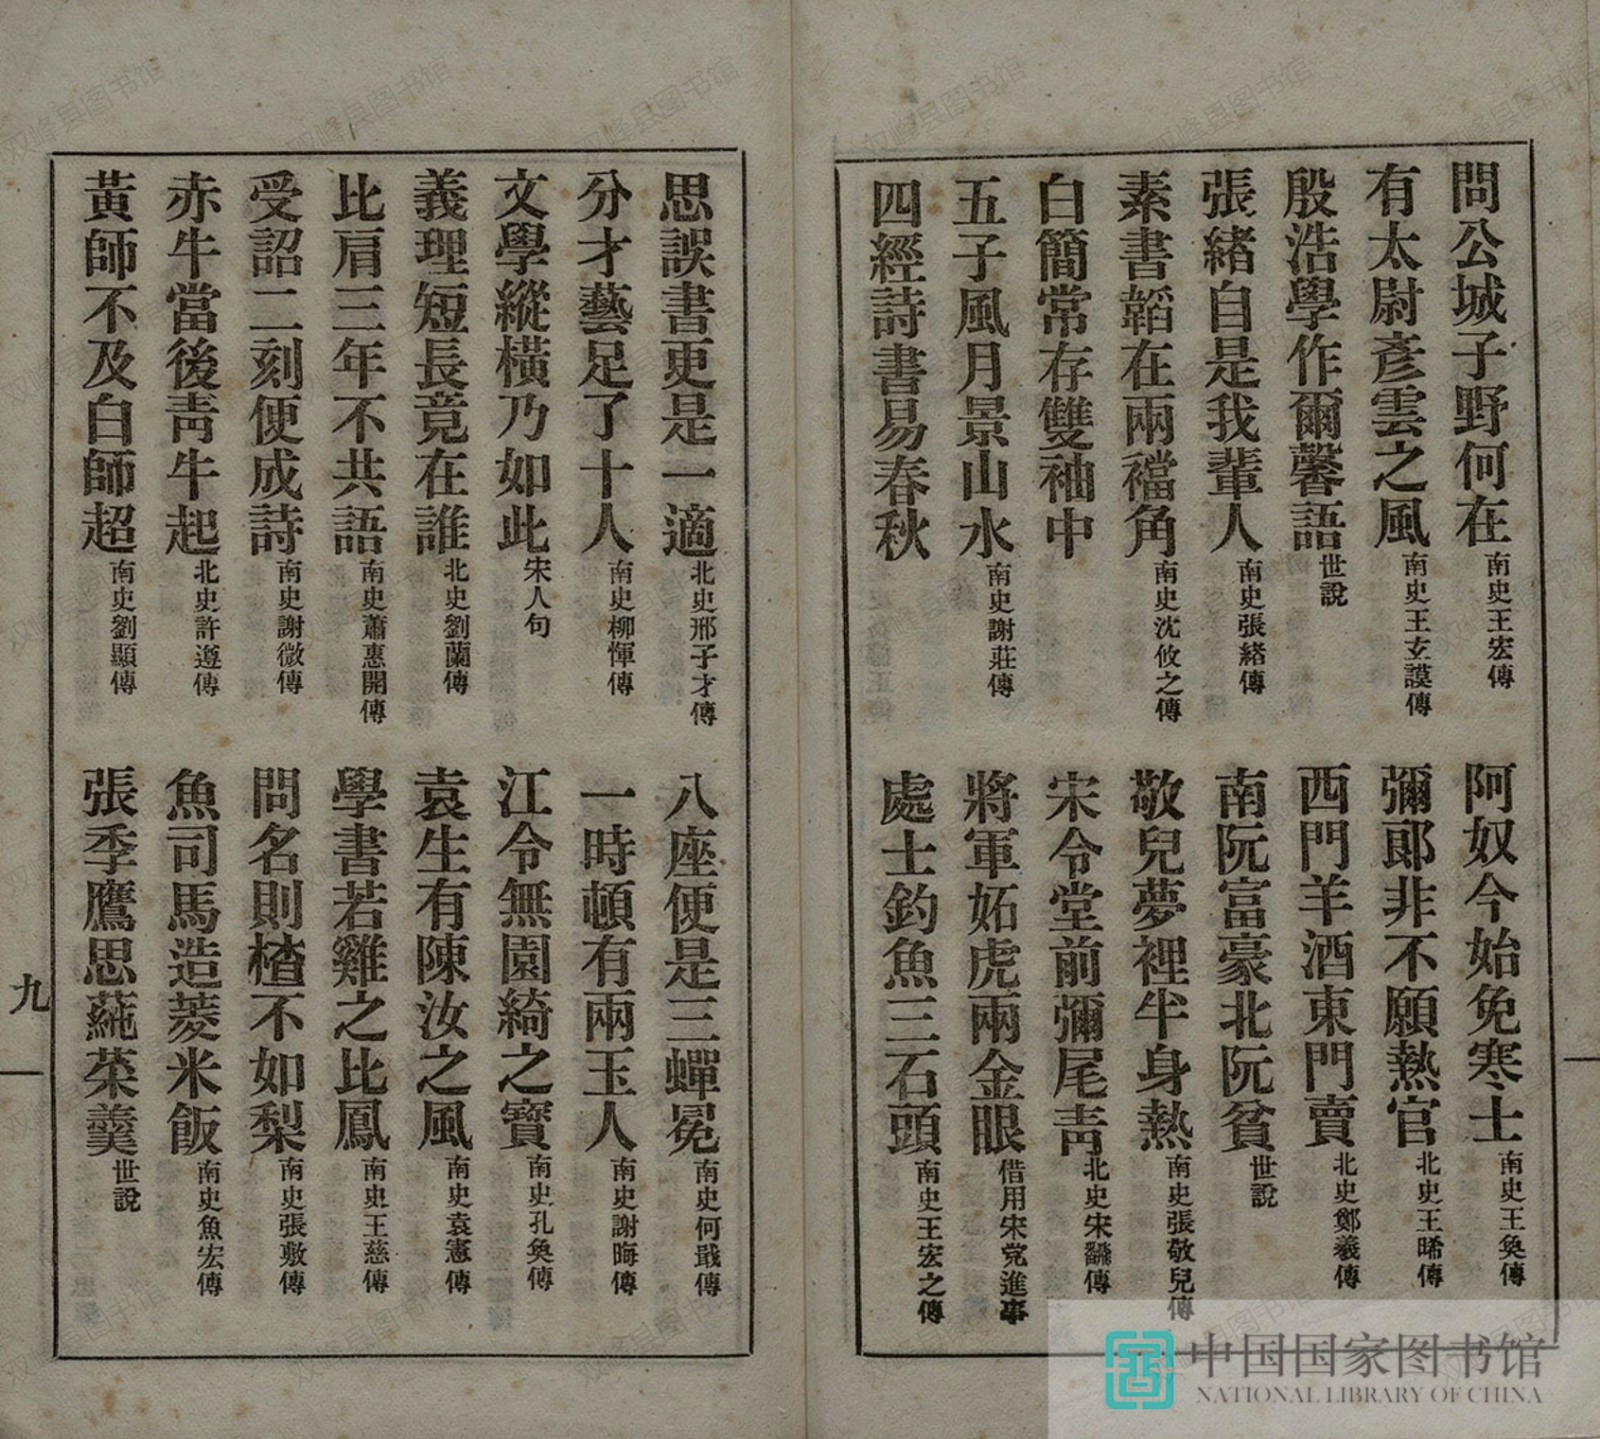 問公城子野何在南史王宏傳
阿奴今始免寒士南史王奐傳
有太尉彥雲之風南史王玄謨傳
彌郎非不願熱官北史王晞傳
殷浩學作爾馨語世說
西門羊酒東門賣北史鄭羲傳
張緒自是我輩人南史張緒傳
南阮富豪北阮貧世說
素書韜在兩襠角南史沈攸之傳
敬兒夢裡半身熱南史張敬兒傳
白簡常存雙袖中
宋令堂前彌尾青北史宋飜傳
五子風月景山水南史謝莊傳
將軍妬虎兩金眼借用宋党進事
四經詩書易春秋
處士釣魚三石頭南史王宏之傳
思誤書更是一適北史邢子才傳
八座便是三蟬冕南史何戢傳
分才藝足了十人南史柳惲傳
一時頓有兩玉人南史謝晦傳
文學縱橫乃如此宋人句
江令無園綺之寶南史孔奐傳
義理短長竟在誰北史劉蘭傳
袁生有陳汝之風南史袁憲傳
比肩三年不共語南史蕭惠開傳
學書若雞之比鳳南史王慈傳
受詔二刻便成詩南史謝微傳
問名則楂不如梨南史張敷傳
赤牛當後青牛起北史許遵傳
魚司馬造菱米飯南史魚宏傳
黃師不及白師超南史劉顯傳
張季鷹思蒓菜羹世說
九
中国国家图书馆
NATIONAL LIBRARY OF CHINA
双峰县图书馆